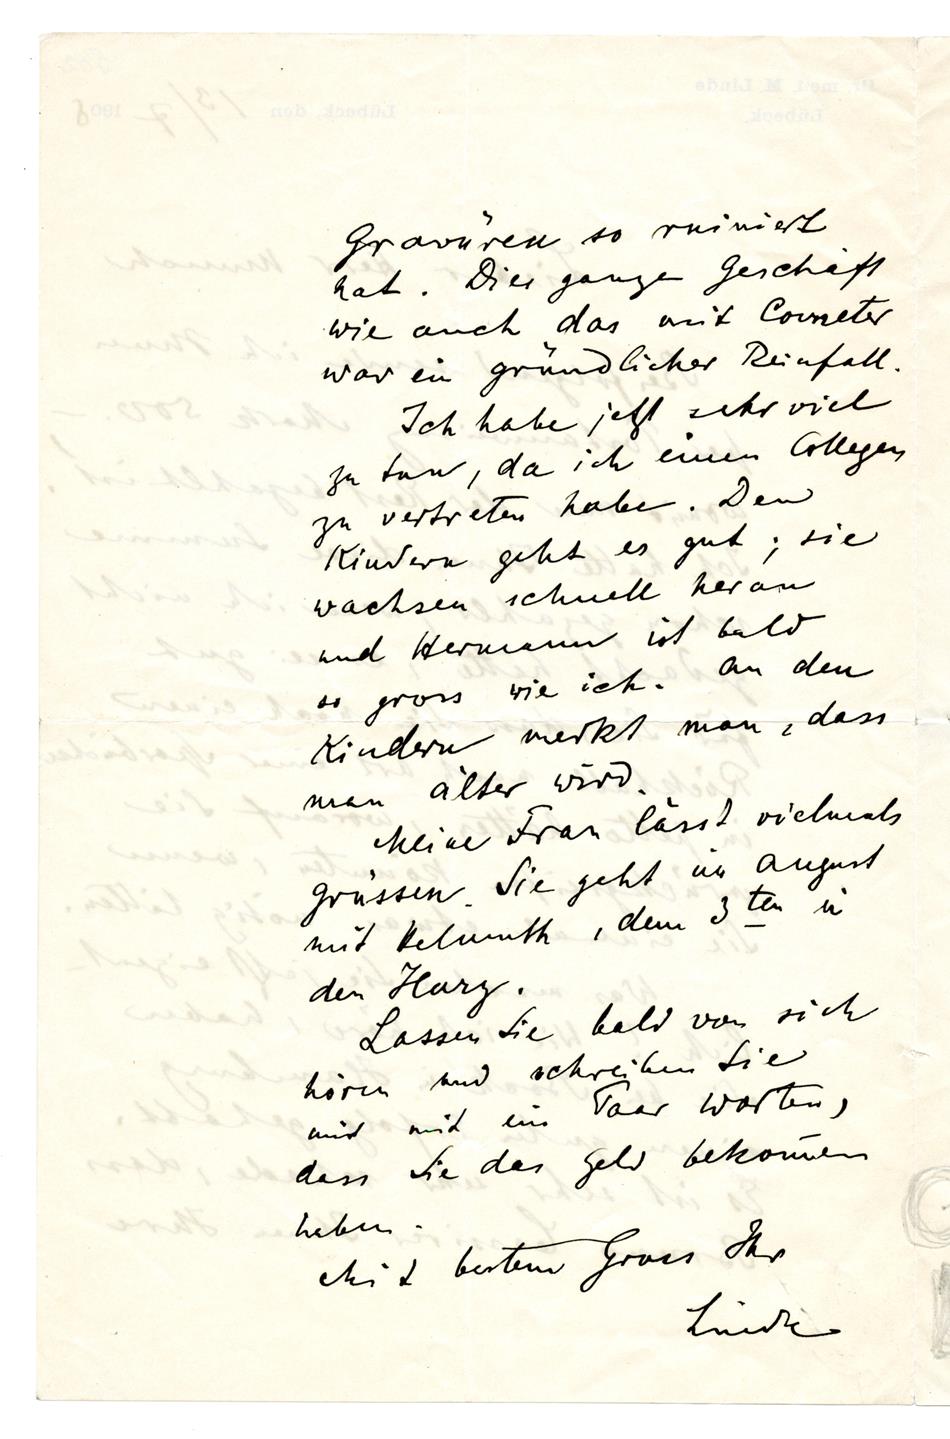 Gravüren so ruiniert
hat. Dies ganze Geschäft
wie auch das mit Commeter
war ein gründlicher Reinfall.
Ich habe jetzt sehr viel
zu tun, da ich einen Collegen
zu vertreten habe. Den
Kindern geht es gut; sie
wachsen schnell heran
und Hermann ist bald
so gross wie ich. An den
Kindern merkt man, dass
man älter wird.
Meine Frau lässt vielmals
grüssen. Sie geht im August
mit Helmuth, dem 3ten in
den Harz.
Lassen Sie bald von sich
hören und schreiben Sie
mir mit ein Paar Worten,
dass Sie das Geld bekommen
haben.
Mit bestem Gruss Ihr
Linde